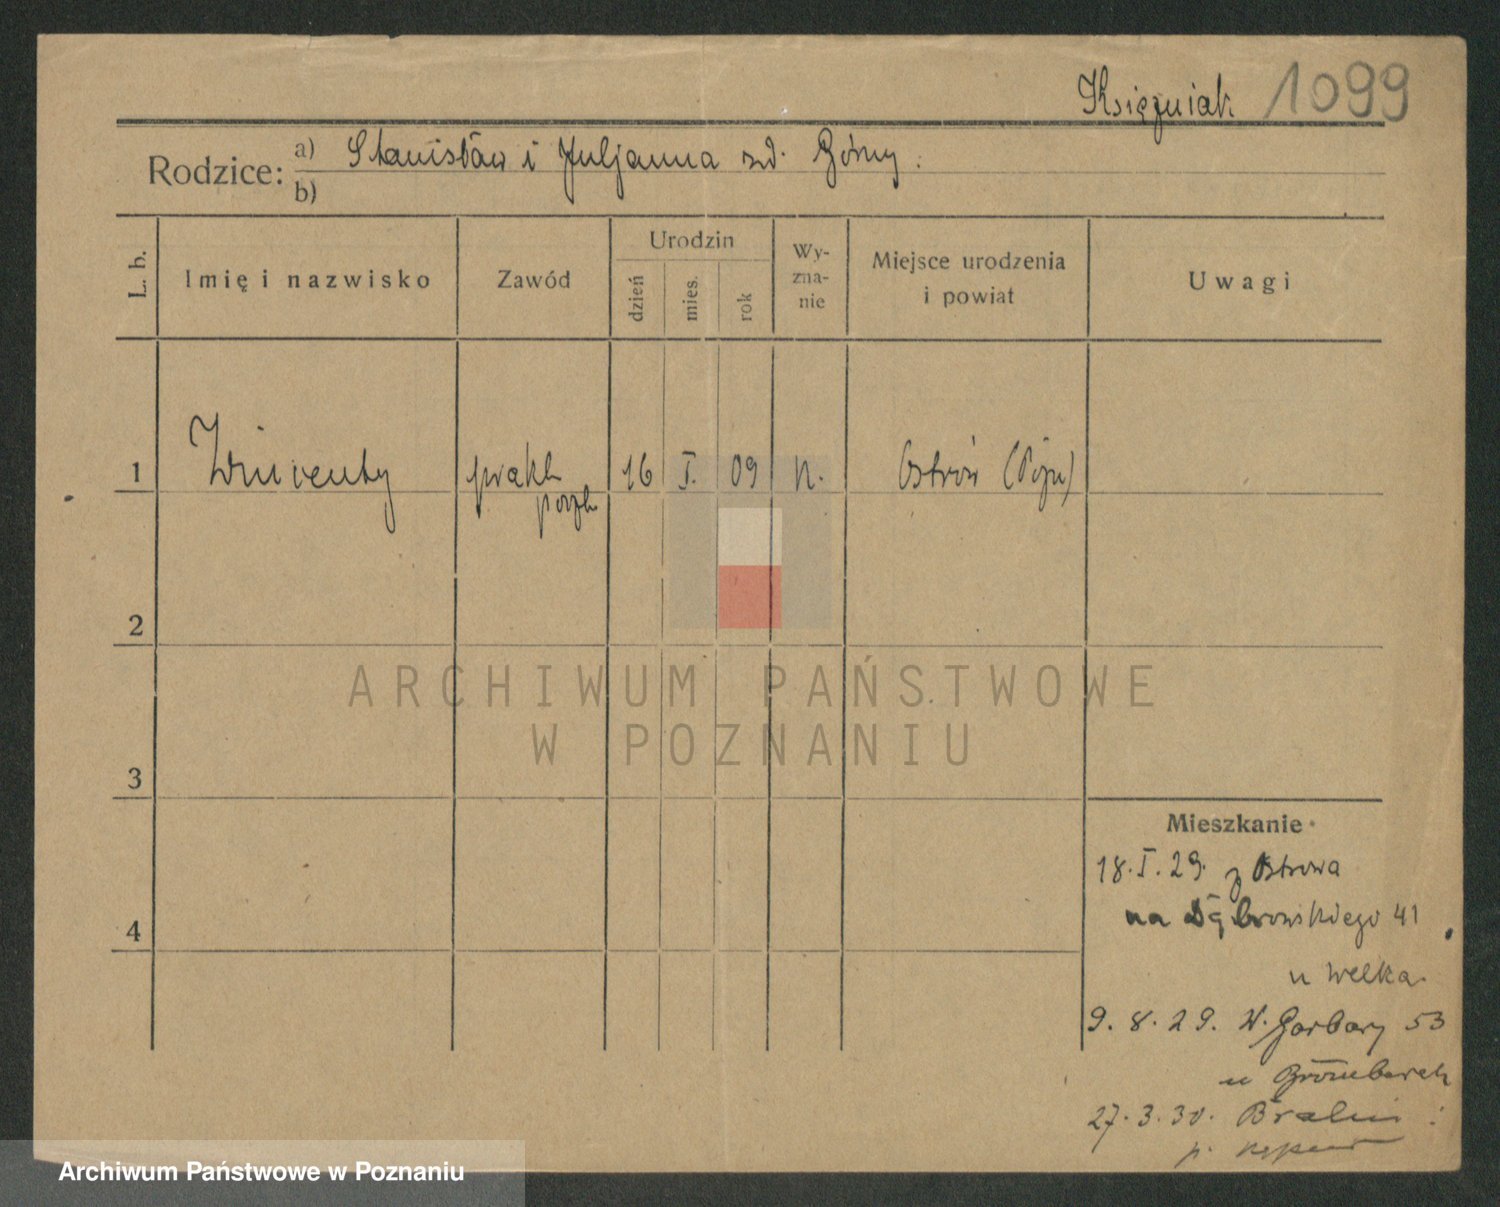 Księżniak 1099
Rodzice: a) Stanisław i Juljanna zd. Górny.
b)
L. b. Imię i nazwisko Zawód Urodzin dzień mies. rok Wy-zna-nie Miejsce urodzenia i powiat Uwagi
1 Wincenty prakt. 16 I. 09 Ostrów
2
3
4
Mieszkanie
18.I.29. z Ostrowa
na Dąbrowskiego 41
u Welka
9.8.29. W. Garbary 53
u
27.3.30. Bralin
p.
ARCHIWUM PAŃSTWOWE
W POZNANIU
Archiwum Państwowe w Poznaniu